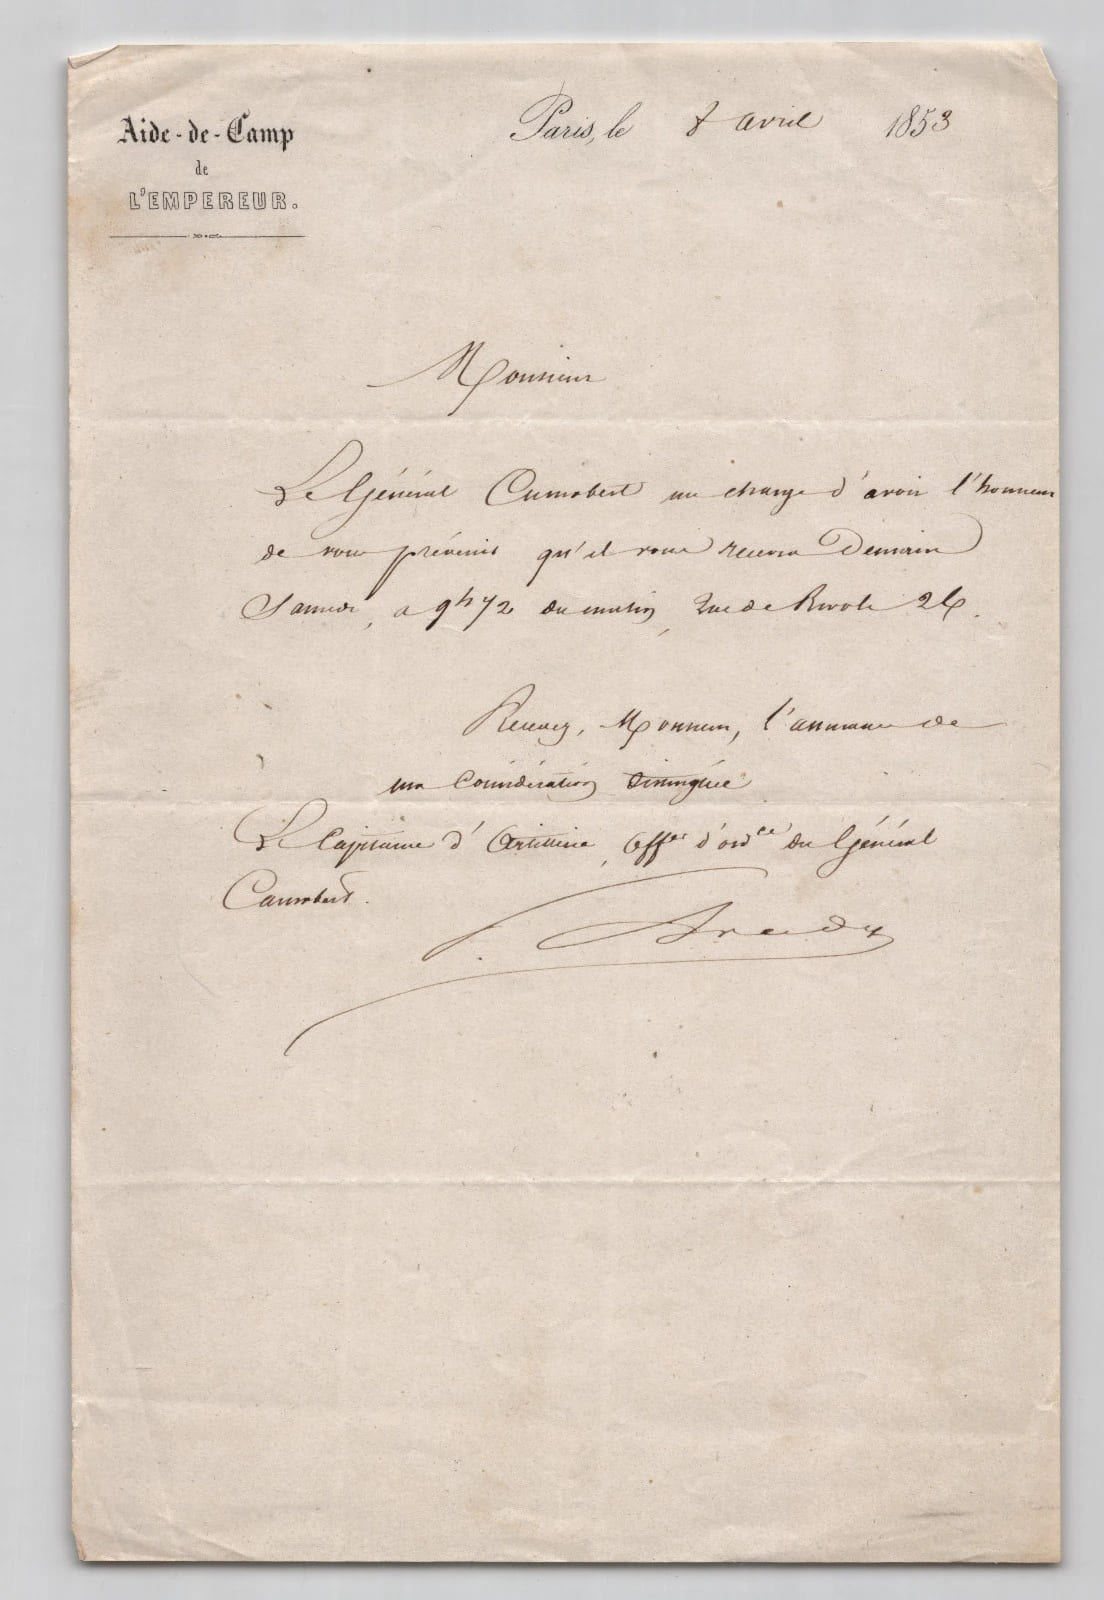 Aide-de-Camp
de
L'EMPEREUR.
Paris, le 8 avril 1853
Monsieur
Le Général Canrobert me charge d'avoir l'honneur
de vous prévenir qu'il vous recevra Demain
Samedi, a 9h 1/2 du matin, Rue de Rivoli 26.
Recevez, Monsieur, l'assurance de
ma Considération Distinguée
Le Capitaine d'Artillerie, Offer d'ordce du Général
Canrobert.